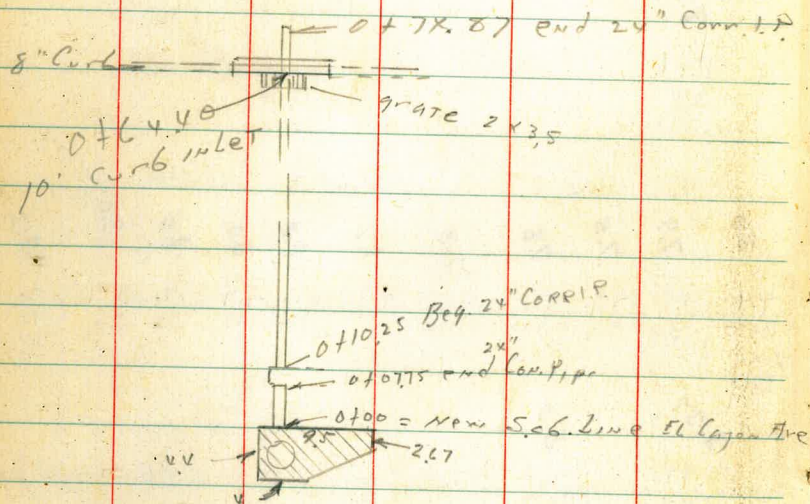 end 24" Corr I.P.
8" Curb
grate 2 x 3,5
0+64.40
10' Curb inLet
0+10.25 Beg. 24" CORR I.P.
24"
0+07.75 end Con. Pipe
0+00 = New S. cb. Line El Cajon Ave
9.5
2.67